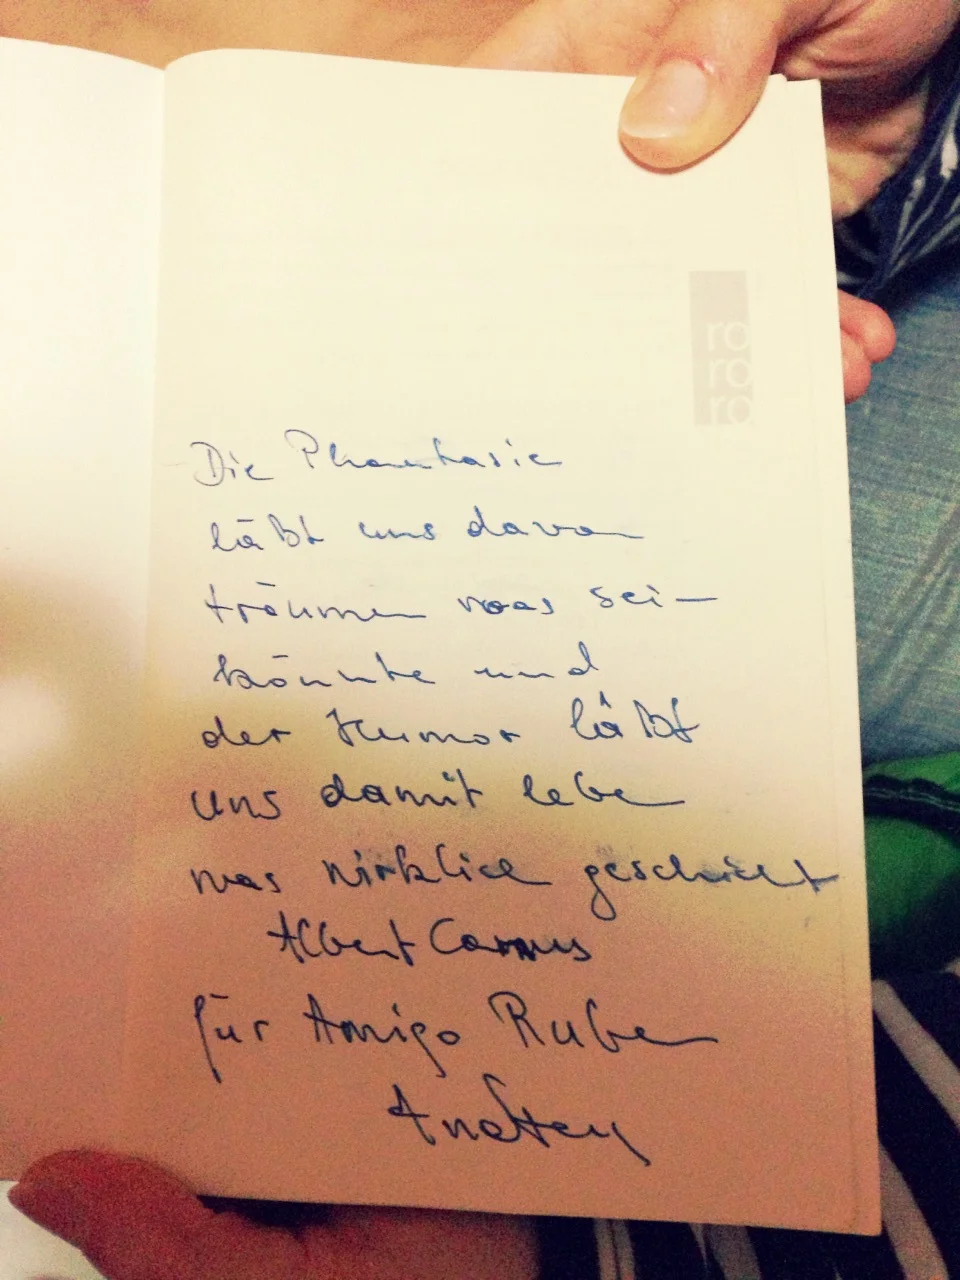 ro
ro
ro
Die Phantasie
läßt uns davon
träumen was sein
könnte und
der Humor läßt
uns damit leben
was wirklich geschieht
Albert Camus
für Amigo Ruben